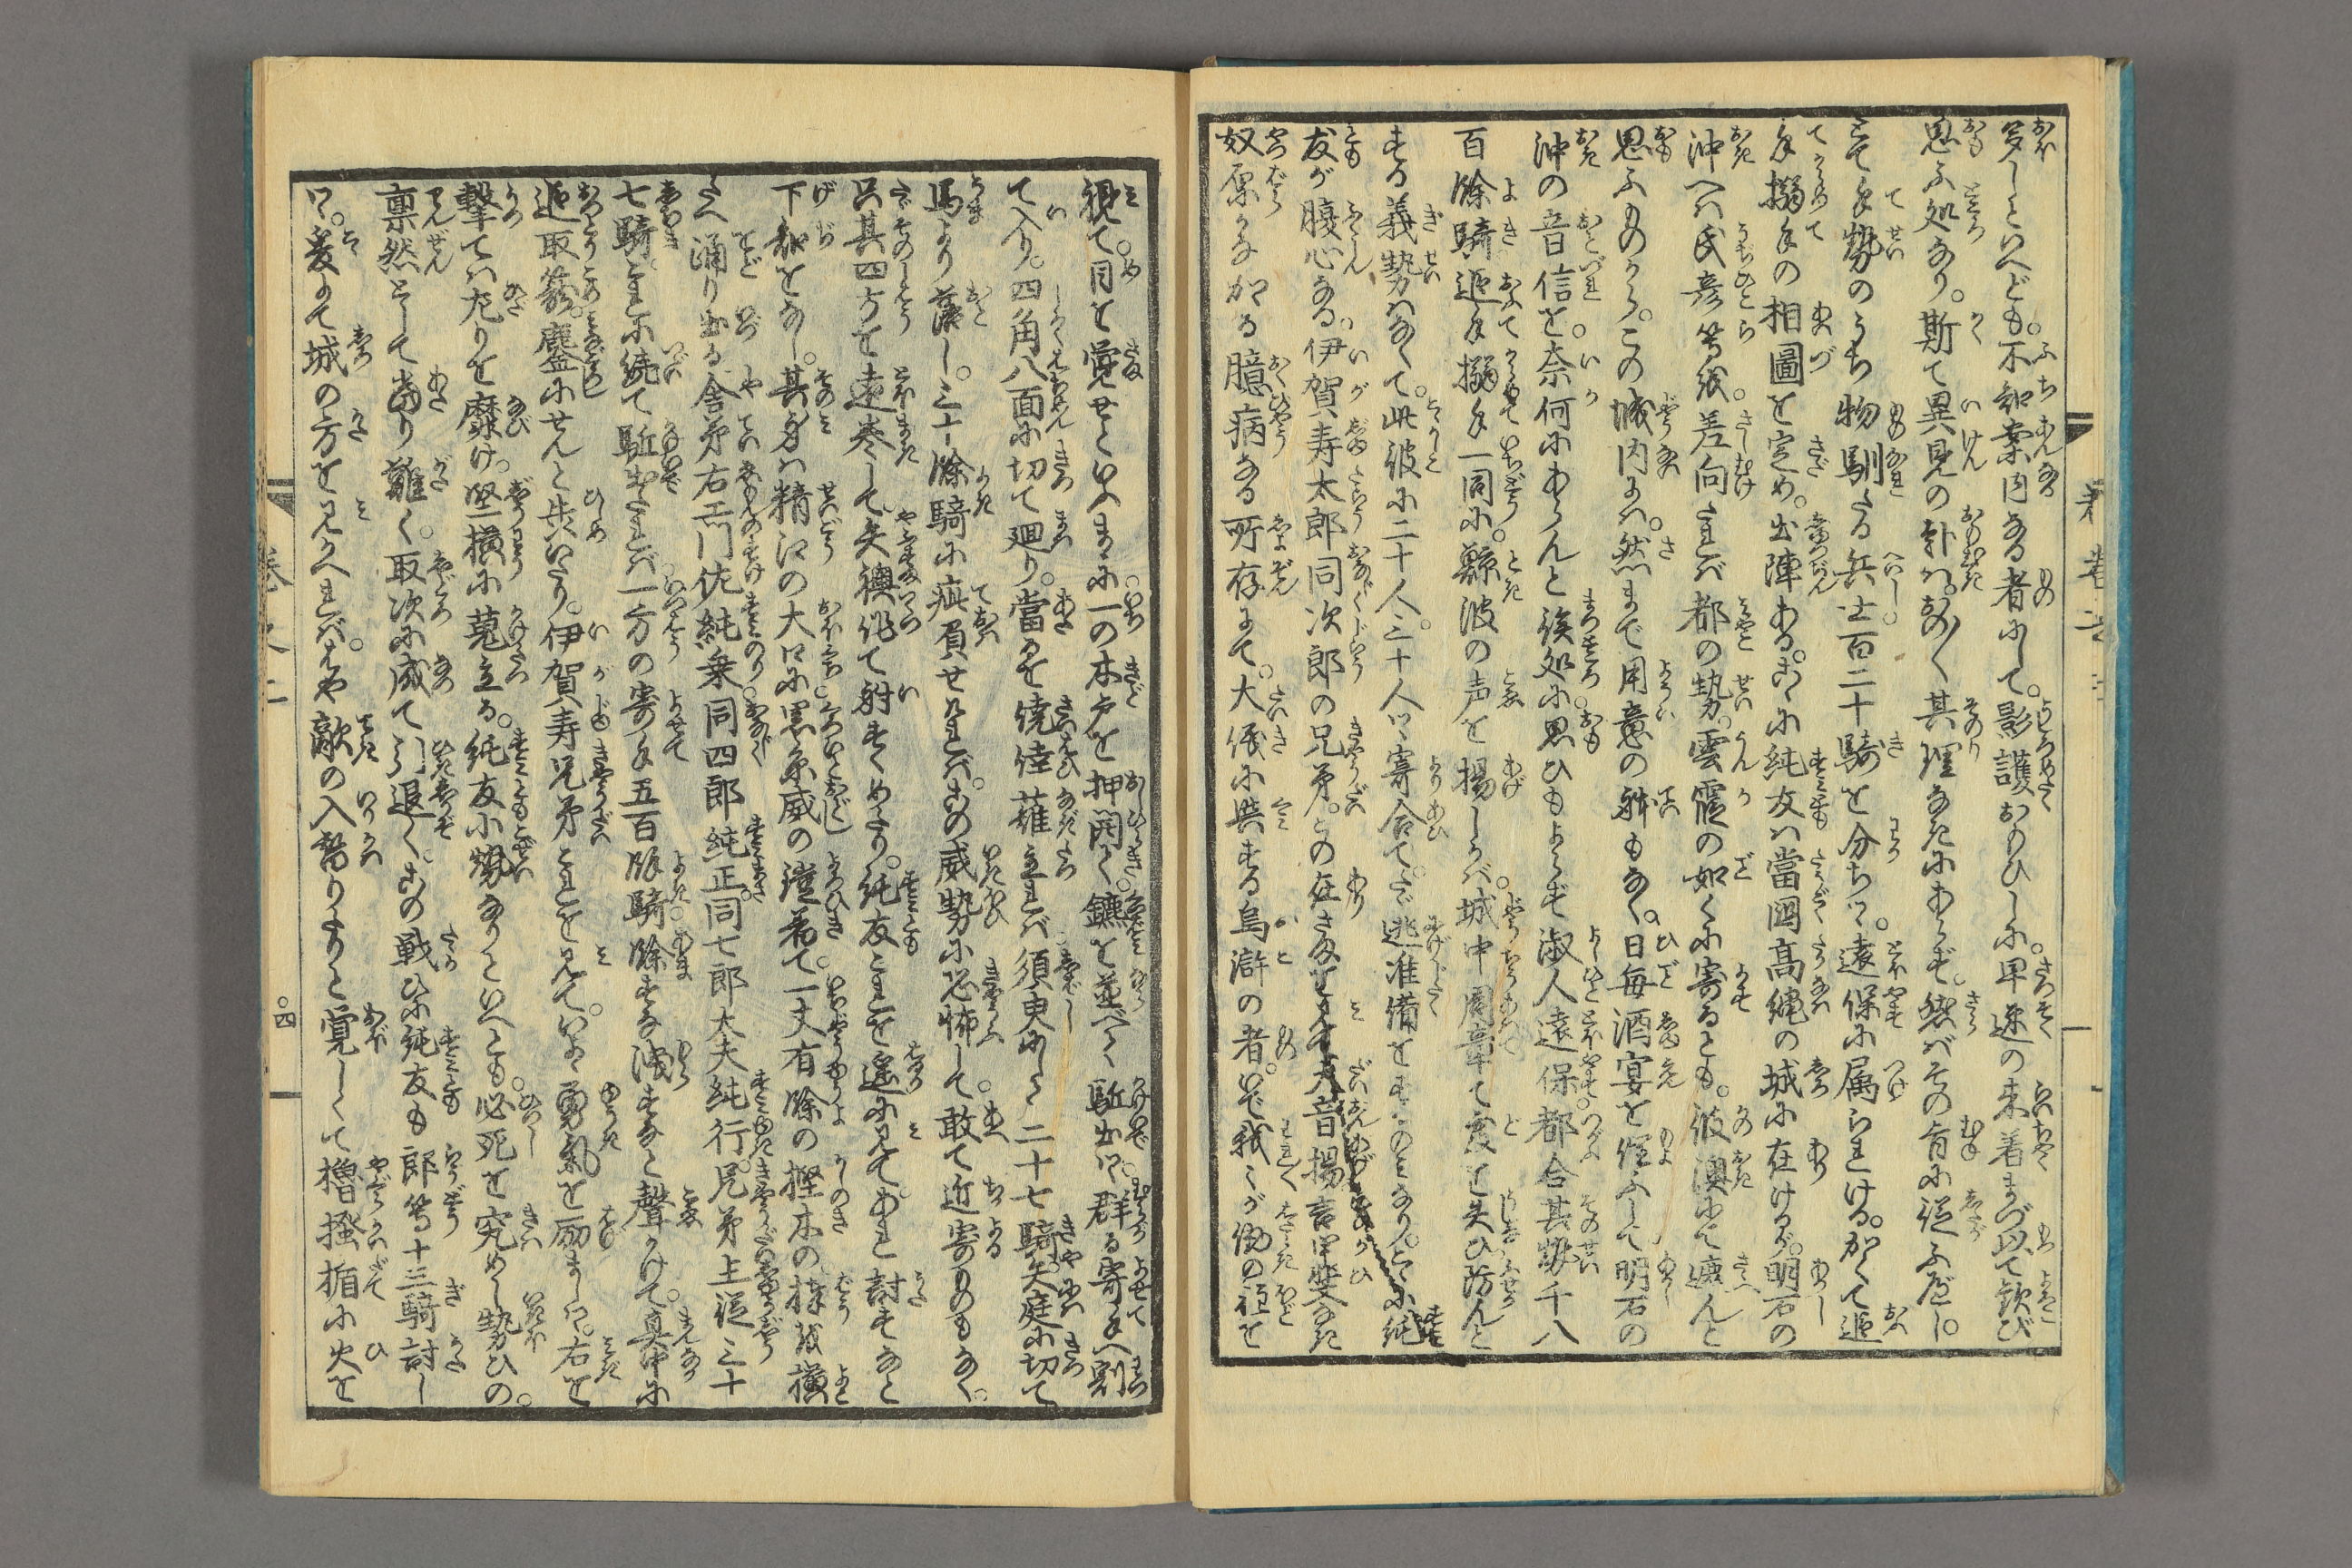 多しといへども。不知案内なる者にして。影護おもひしに。早速の来着まづ以て欽び
思ふ処なり。斯て異見の趣は。おの〳〵其理なきにあらず。然ばその旨に従ふ座し。
とて手勢のうち物馴たる兵士百二十騎を分ちて。遠保に属られける。かくて追
手搦手の相圖を定め。出陣ある。こゝに純友は當国高縄の城に在けるが。明石の
沖へは氏彦等を差向たれば都の勢。雲霞の如くに寄るとも。彼澳にて遮んと
思ふものから。この城内には。然まで用意の躰もなく。日毎酒宴を催ふして明石の
沖の音信を。奈何にあらんと俟処に。思ひもよらず淑人遠保都合其勢千八
百餘騎追手搦手一同に。鯨波の声を揚しかば。城中周章て度を失ひ防んと
する義勢はなくて。此彼に二十人三十人ツヽ寄合て。たゞ逃准備をするのみなり。とくに純
友が腹心なる。伊賀寿太郎同次郎の兄弟。この在さまを見て大音揚言甲斐なき
奴原かなかゝる臆病なる所存にて。大儀に與する烏滸の者。いで我々が働の程を
視て。目を覚せといふまゝに一の木戸を押開き。鑣を並べて駈出ツヽ。群る寄手へ割
て入り。四角八面に切て廻り。當るを僥倖薙立れば須臾にして二十七騎矢庭に切て
馬より落し。三十餘騎に疵負せければ。この威勢に恐怖して。敢て近寄ものもなく。
只其四方を遠巻して。矢襖作て射すくめたり。純友これを遥に見て。あれ討すなと
下知をなし。其身は精江の大口に黒糸威の鎧着て。一丈有餘の樫木の棒を横
たへ踊り出る舎弟右エ門佐純乗同四郎純正。同七郎大夫純行。兄弟主従三十
七騎。これに続て駈出たれば一方の寄手五百餘騎餘すな洩すなと聲かけて。真中に
追取籠。鏖にせんと犇いたり。伊賀寿兄弟これを見て。いよ〳〵勇氣を励ましツヽ。右を
撃ては左りを靡け。竪横に蒐立る。純友小勢なりといへども。必死を究めし勢ひの。
凛然として當り難く。取次に成て引退く。この戦ひに純友も郎等十三騎討し
ツ。爰にて城の方を見かへれば。はや敵の入替りたりと覚しくて櫓掻楯に火を
巻之二
四